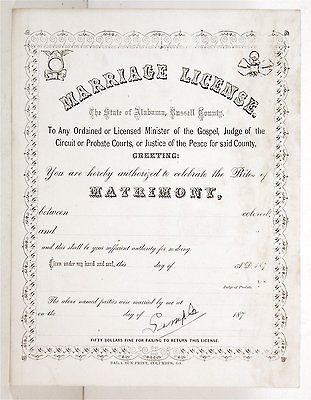 MARRIAGE LICENSE.
The State of Alabama, Russell County.
To Any Ordained or Licensed Minister of the Gospel, Judge of the
Circuit or Probate Courts, or Justice of the Peace for said County,
GREETING:
You are hereby authorized to celebrate the Rites of
MATRIMONY,
between colored,
and
and this shall be your sufficient authority for so doing.
Given under my hand and seal, this day of A.D. 187
Judge of Probate.
The above named parties were married by me at
on the day of 187
Sample
FIFTY DOLLARS FINE FOR FAILING TO RETURN THIS LICENSE.
PRINT, COLUMBUS, GA.